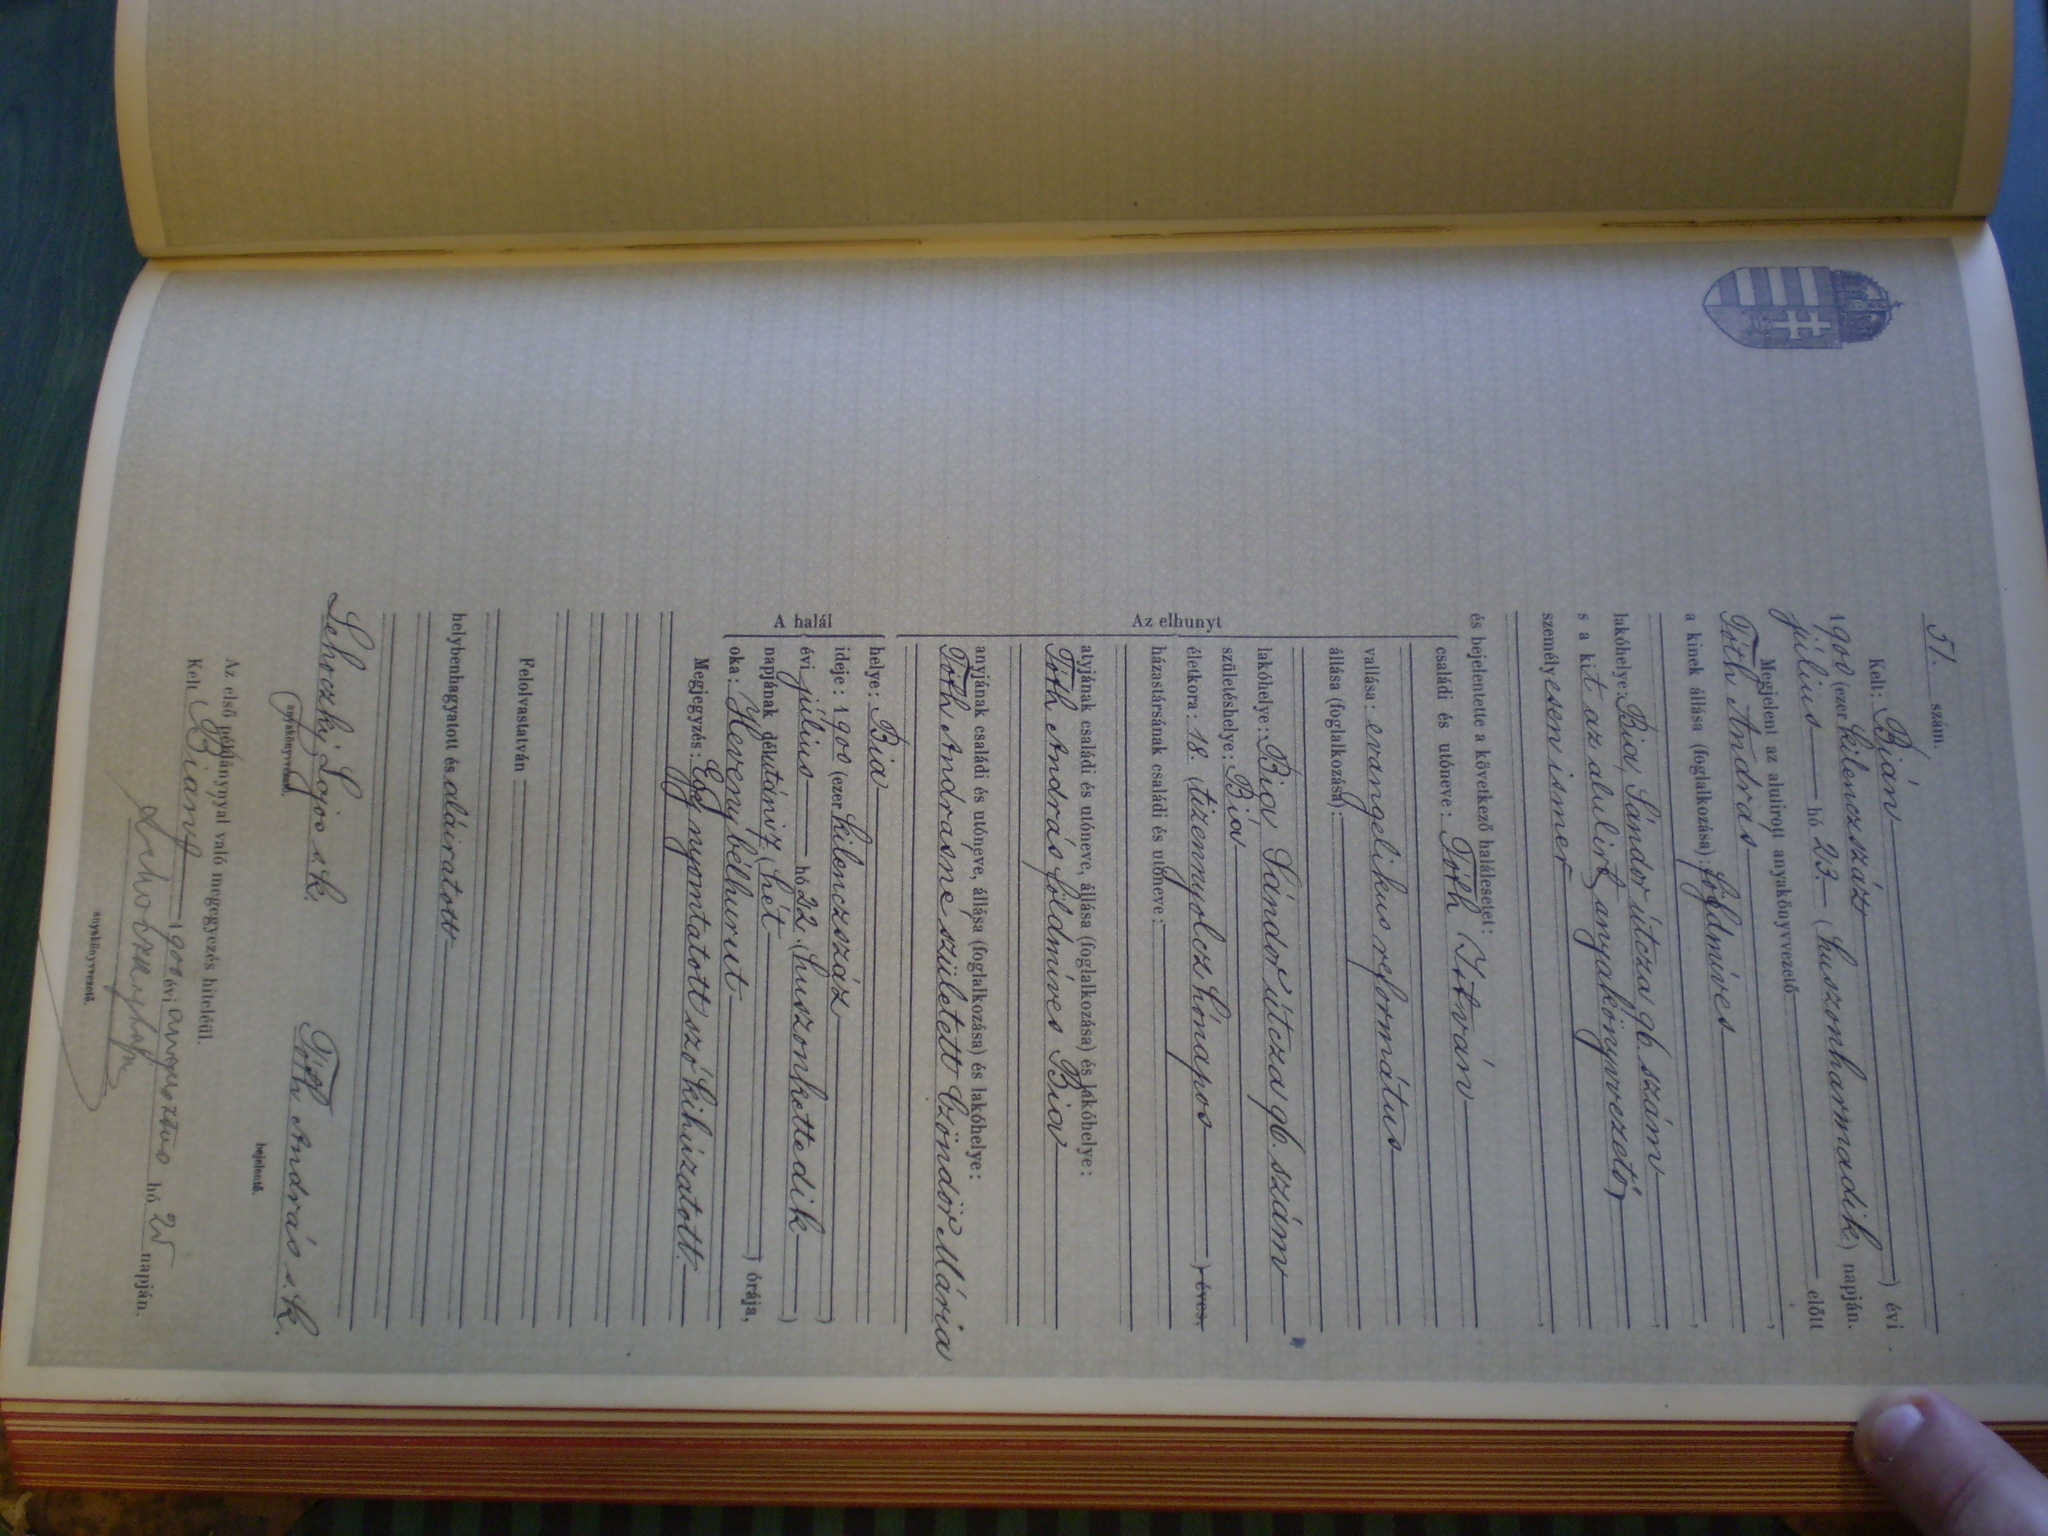 51. szám.
Kelt: Bián ) évi
1900 (ezer kilenczszáz
július hó 23. (huszonharmadik) napján.
Megjelent az alulírott anyakönyvvezető előtt
Tóth András,
a kinek állása (foglalkozása): földmíves,
lakóhelye: Bia, Sándor útcza 96. szám,
s a kit az alulirt anyakönyvvezető
személyesen ismer,
és bejelentette a következő halálesetet:
Az elhunyt
családi és utóneve: Tóth István
vallása: evangelikus református
állása (foglalkozása):
lakóhelye: Bia Sándor útcza 96. szám
születéshelye: Bia
életkora: 18. (tizennyolcz hónapos ) éves.
házastársának családi és utóneve:
atyjának családi és utóneve, állása (foglalkozása) és lakóhelye:
Tóth András földmíves Bia
anyjának családi és utóneve, állása (foglalkozása) és lakóhelye:
Tóth Andrásné született Czöndör Mária
A halál
helye: Bia
ideje: 1900 (ezer kilenczszáz )
évi július hó 22. (huszonkettedik )
napjának délutáni 7 (hét ) órája,
oka: Heveny bélhurut
Megjegyzés: Egy nyomtatott szó kihúzatott.
Felolvastatván
helybenhagyatott és aláiratott
Lehoczky Lajos s. k. Tóth András s. k.
anyakönyvvezető. bejelentő.
Az első példánynyal való megegyezés hiteléül.
Kelt Bián 1900 évi augusztus hó napján.
anyakönyvvezető.